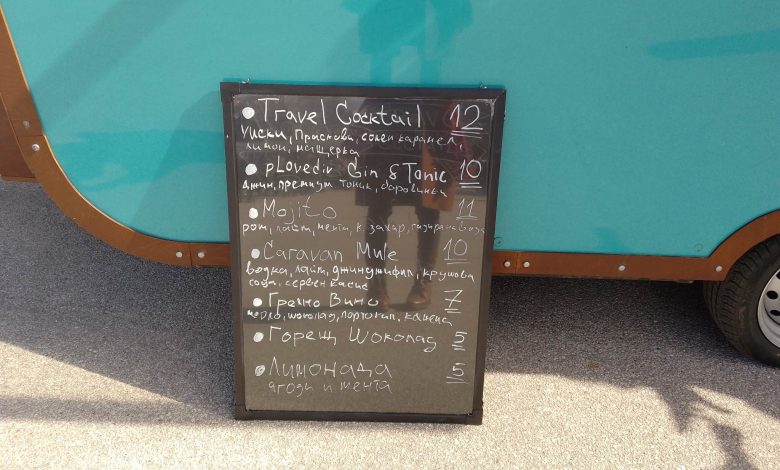 • Travel Cocktail 12
уиски, Праскова, солен карамел,
лимон, мащерка
• pLovediv Gin & Tonic 10
джин, премиум тоник, боровинки
• Mojito 11
ром, лайм, мента, к. захар, газирана вода
• Caravan Mule 10
водка, лайм, джинджифил, крушова
сода, червен касис
• Гряно Вино 7
портокал, канела
• Горещ Шоколад 5
• Лимонада 5
ягоди и мента